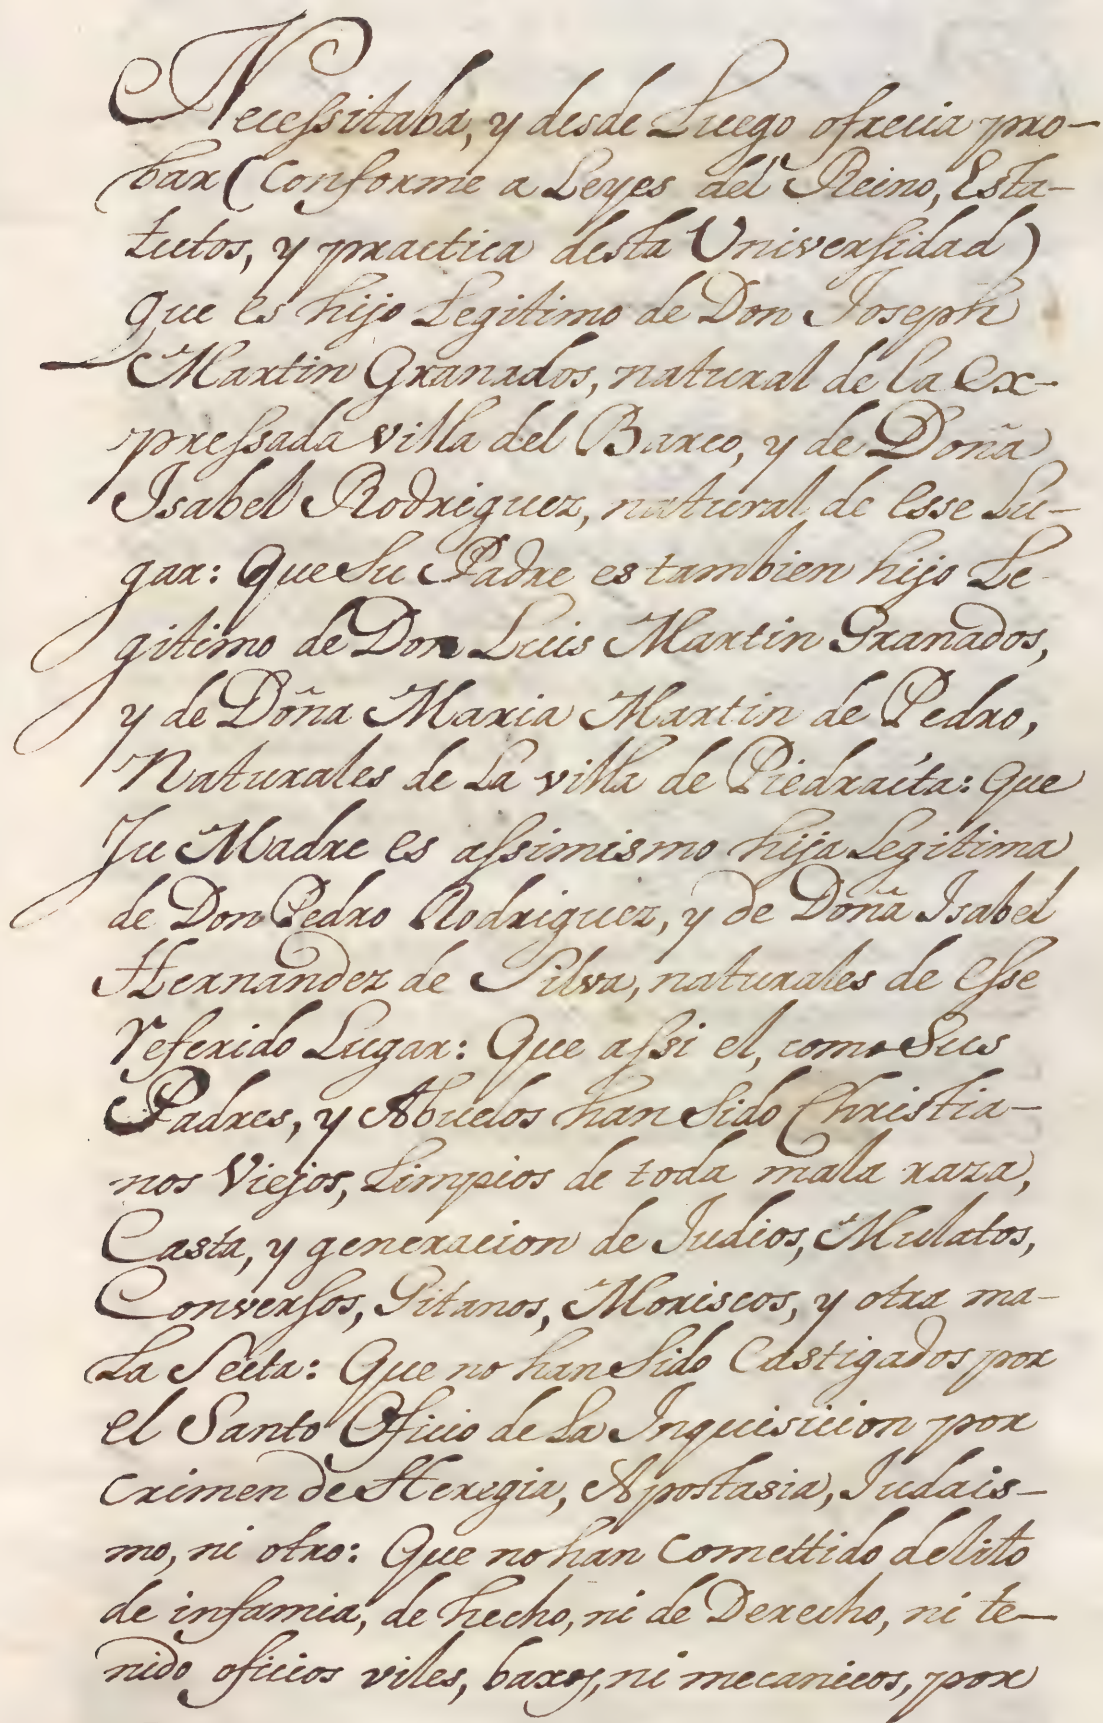 Necessitaba, y desde Luego ofrecia pro-
bar (Conforme a Leyes del Reino, Esta-
tutos, y practica desta Universidad)
que es hijo Legitimo de Don Joseph
Martin Granados, natural de la ex-
pressada villa del Barco, y de Doña
Isabel Rodriguez, natural de esse Lu-
gar: Que Su Padre es tambien hijo Le-
gitimo de Don Luis Martin Granados,
y de Doña Maria Martin de Pedro,
Naturales de La villa de Piedraíta: Que
Su Madre es assimismo hija Legitima
de Don Pedro Rodriguez, y de Doña Isabel
Hernandez de Silva, naturales de esse
referido Lugar: Que assi el, como Sus
Padres, y Abuelos han Sido Christia-
nos Viejos, Limpios de toda mala raza,
Casta, y generacion de Judios, Mulatos,
Conversos, Gitanos, Moriscos, y otra ma-
la Secta: Que no han Sido Castigados por
el Santo Oficio de La Inquisicion por
Crimen de Heregia, Apostasia, Judais-
mo, ni otro: Que no han Comettido delito
de infamia, de hecho, ni de Derecho, ni te-
nido oficios viles, baxos, ni mecanicos, por